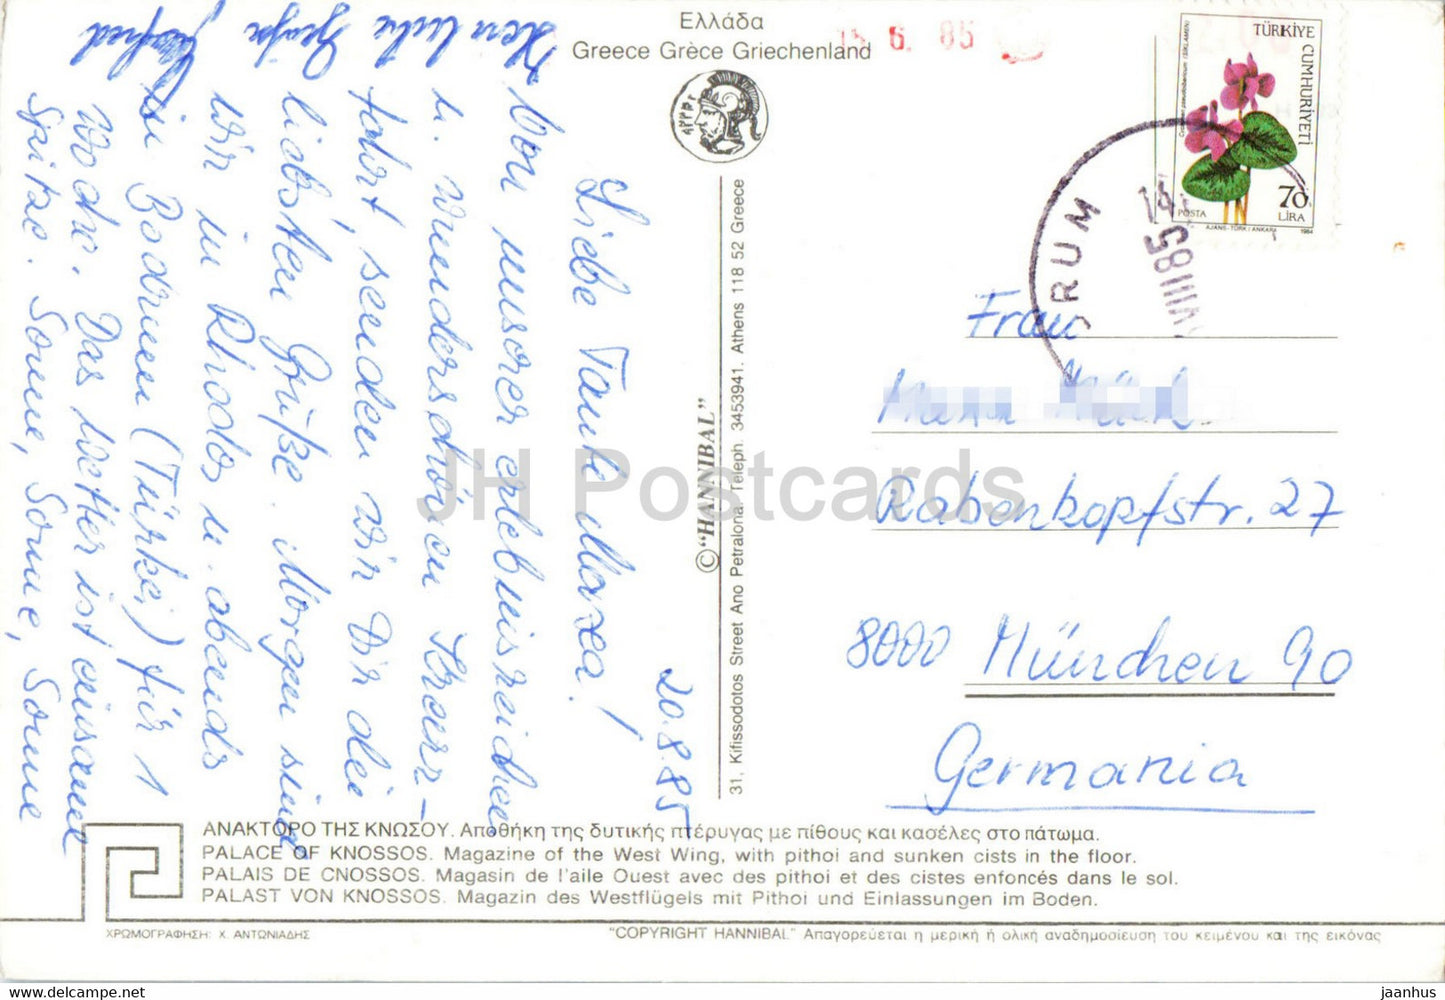 Ελλάδα
Greece Grèce Griechenland
15. 6. 85
TÜRKİYE CUMHURİYETİ
POSTA
70 LİRA
AJANS-TÜRK / ANKARA 1984
RUM
VIII 85
20.8.85
Liebe Tante Maxa!
Von unserer erlebnisreichen
u. wunderschönen Kreuz-
fahrt, senden wir Dir die
liebsten Grüße. Morgen sind
wir in Rhodos u. abends
in Bodrum (Türkei) für 1
Woche. Das Wetter ist einsame
Spitze. Sonne, Sonne, Sonne, Sonne
Frau
Rabenkopfstr. 27
8000 München 90
Germania
31, Kifissodotos Street Ano Petralona. Teleph. 3453941. Athens 118 52 Greece
© "HANNIBAL"
JH Postcards
ΑΝΑΚΤΟΡΟ ΤΗΣ ΚΝΩΣΟΥ. Αποθήκη της δυτικής πτέρυγας με πίθους και κασέλες στο πάτωμα.
PALACE OF KNOSSOS. Magazine of the West Wing, with pithoi and sunken cists in the floor.
PALAIS DE CNOSSOS. Magasin de l'aile Ouest avec des pithoi et des cistes enfoncés dans le sol.
PALAST VON KNOSSOS. Magazin des Westflügels mit Pithoi und Einlassungen im Boden.
ΧΡΩΜΟΓΡΑΦΗΣΗ: Χ. ΑΝΤΩΝΙΑΔΗΣ
"COPYRIGHT HANNIBAL" Απαγορεύεται η μερική ή ολική αναδημοσίευση του κειμένου και της εικόνας
jaanhus